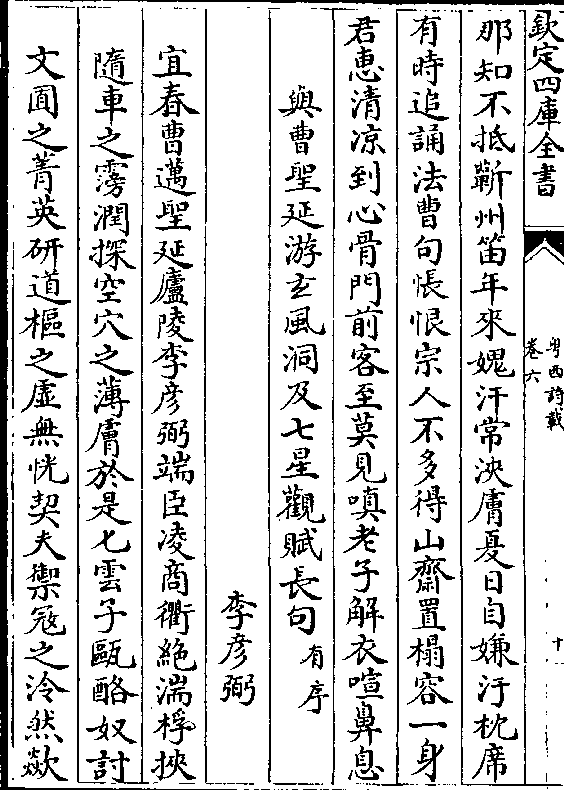 欽定四庫全書
粤西詩載
卷六
十
那知不抵蘄州笛年來媿汗常浹膚夏日自嫌汙枕席
有時追誦法曹句悵恨宗人不多得山齋置榻容一身
君恵清凉到心骨門前客至莫見嗔老子解衣喧鼻息
與曹聖延游玄風洞及七星觀賦長句有序
李彦弼
宜春曹邁聖延廬陵李彦弼端臣凌商衢絶湍桴挾
隨車之霶潤探空穴之薄膚於是七雲子甌酪奴討
文囿之菁英研道樞之虚無恍契夫禦冦之泠然歘